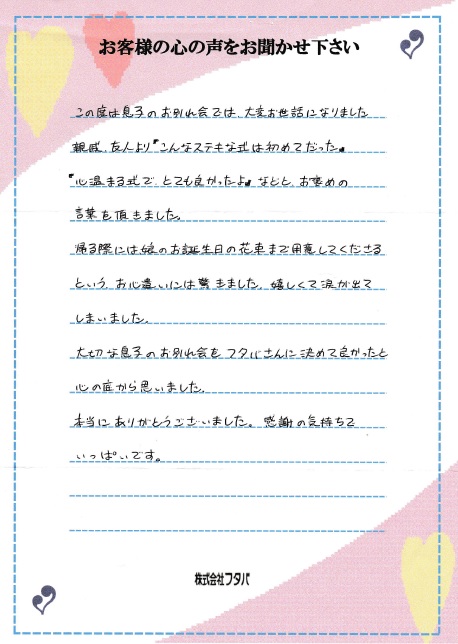 お客様の心の声をお聞かせ下さい
この度は息子のお別れ会では、大変お世話になりました
親戚、友人より『こんなステキな式は初めてだった』
『心温まる式で、とても良かったよ』などと、お褒めの
言葉を頂きました。
帰る際には娘のお誕生日の花束まで用意してくださる
という、お心遣いには驚きました。嬉しくて涙が出て
しまいました。
大切な息子のお別れ会を、フタバさんに決めて良かったと
心の底から思いました。
本当にありがとうございました。感謝の気持ちで
いっぱいです。
株式会社フタバ